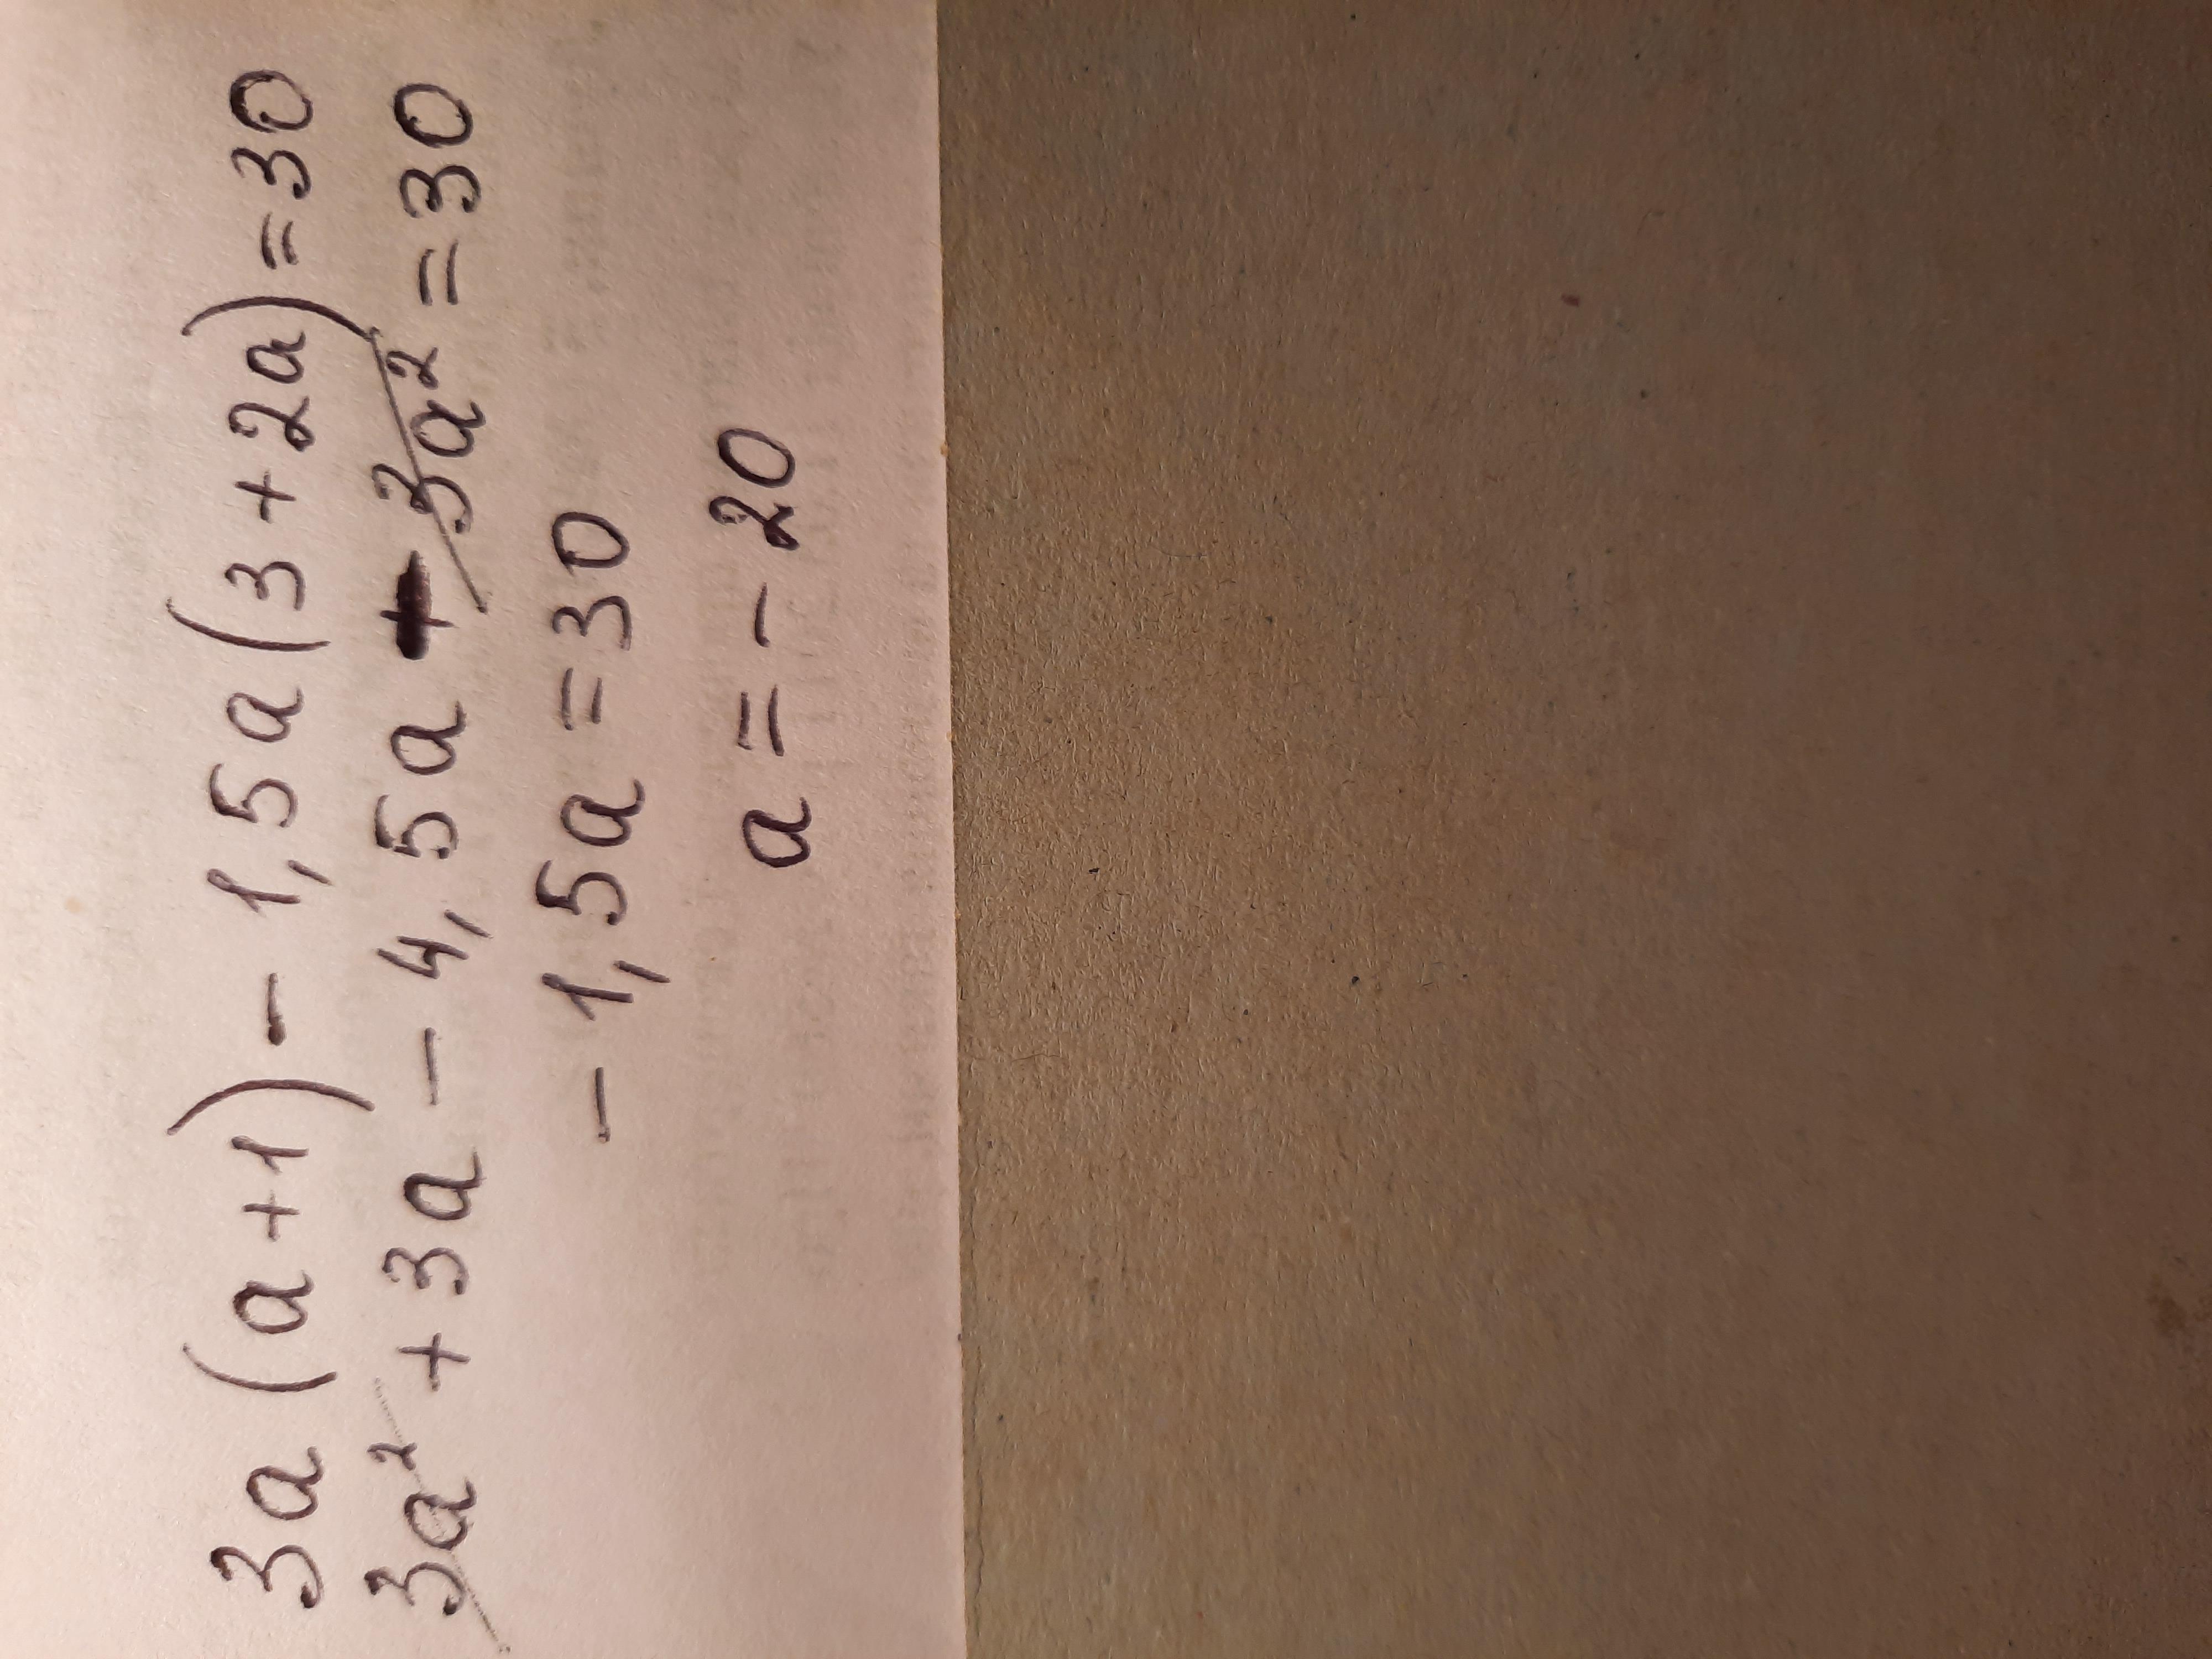 3a(a+1)-1,5a(3+2a)=30
3a²+3a-4,5a-3a²=30
-1,5a=30
a=-20